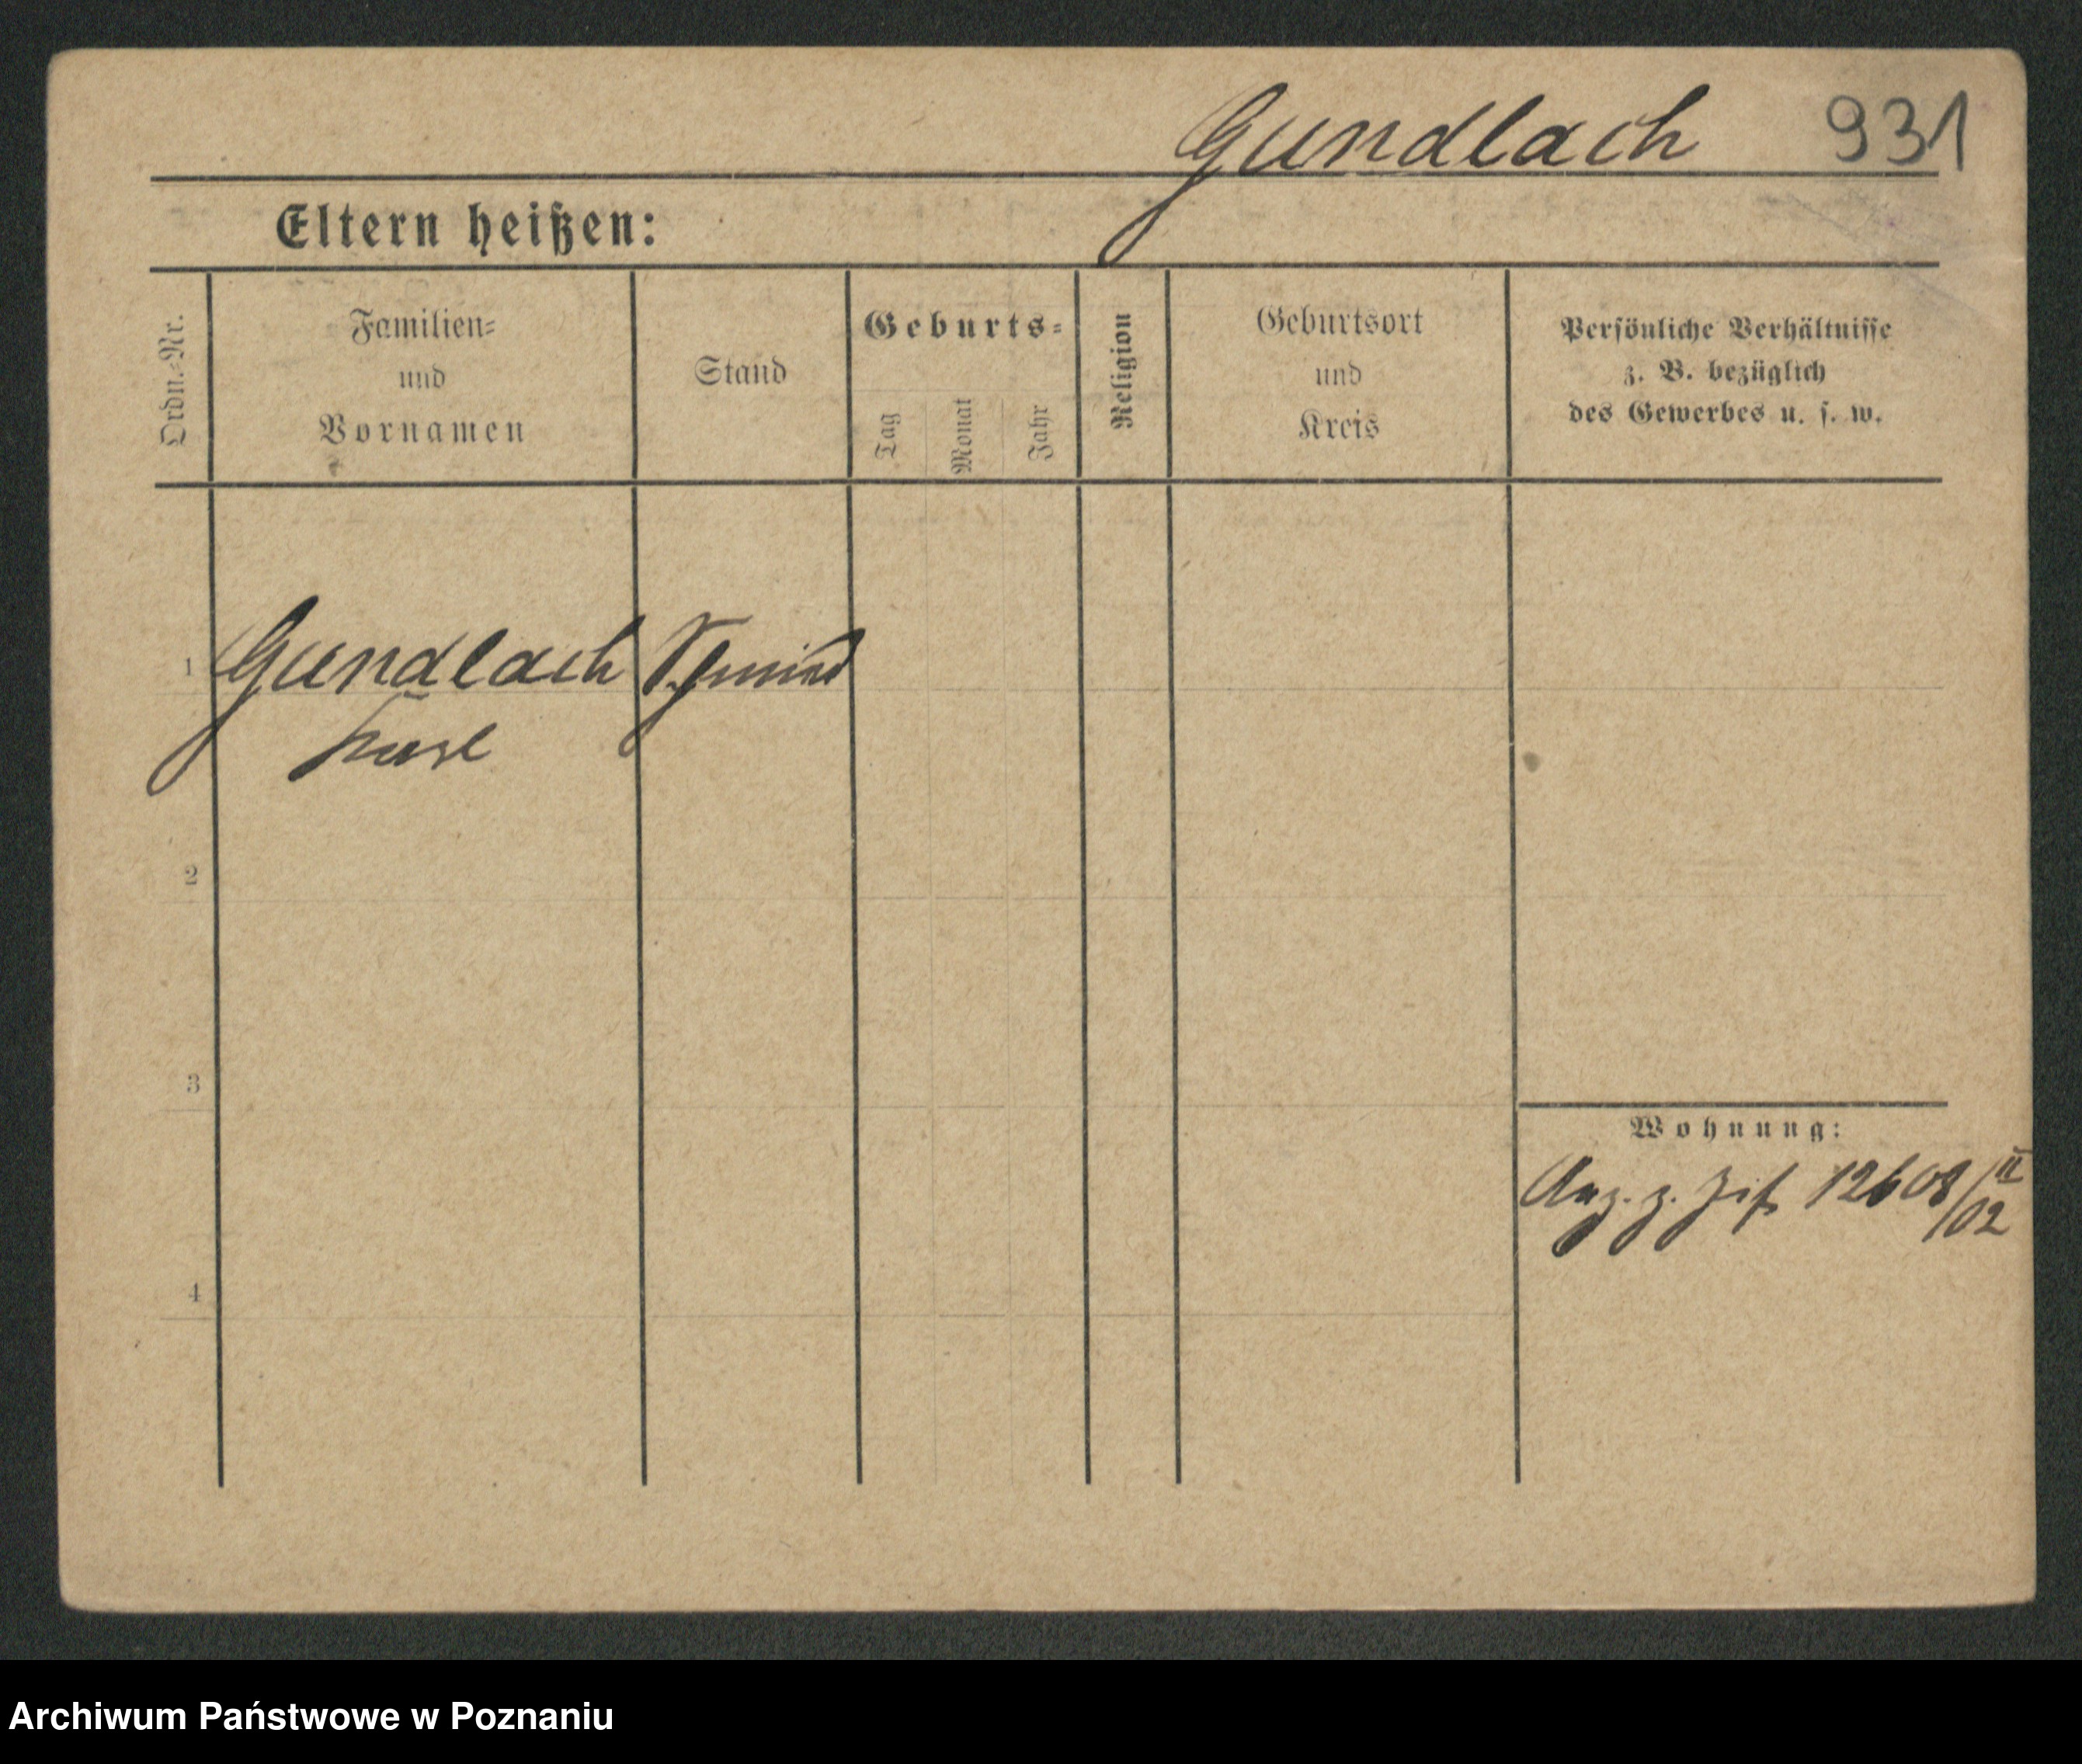 Gundlach 931
Eltern heißen:
Ordn.=Nr.
Familien=
und
Vornamen
Stand
Geburts=
Tag
Monat
Jahr
Religion
Geburtsort
und
Kreis
Persönliche Verhältnisse
z. B. bezüglich
des Gewerbes u. s. w.
1 Gundlach
Karl
2
3
Wohnung:
12608/II
02
4
Archiwum Państwowe w Poznaniu